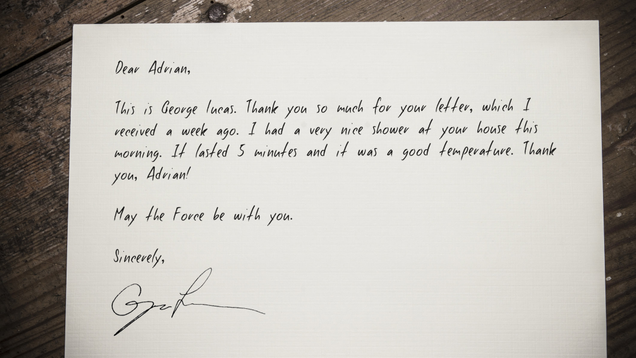 Dear Adrian,
This is George lucas. Thank you so much for your letter, which I
received a week ago. I had a very nice shower at your house this
morning. It lasted 5 minutes and it was a good temperature. Thank
you, Adrian!
May the Force be with you.
Sincerely,